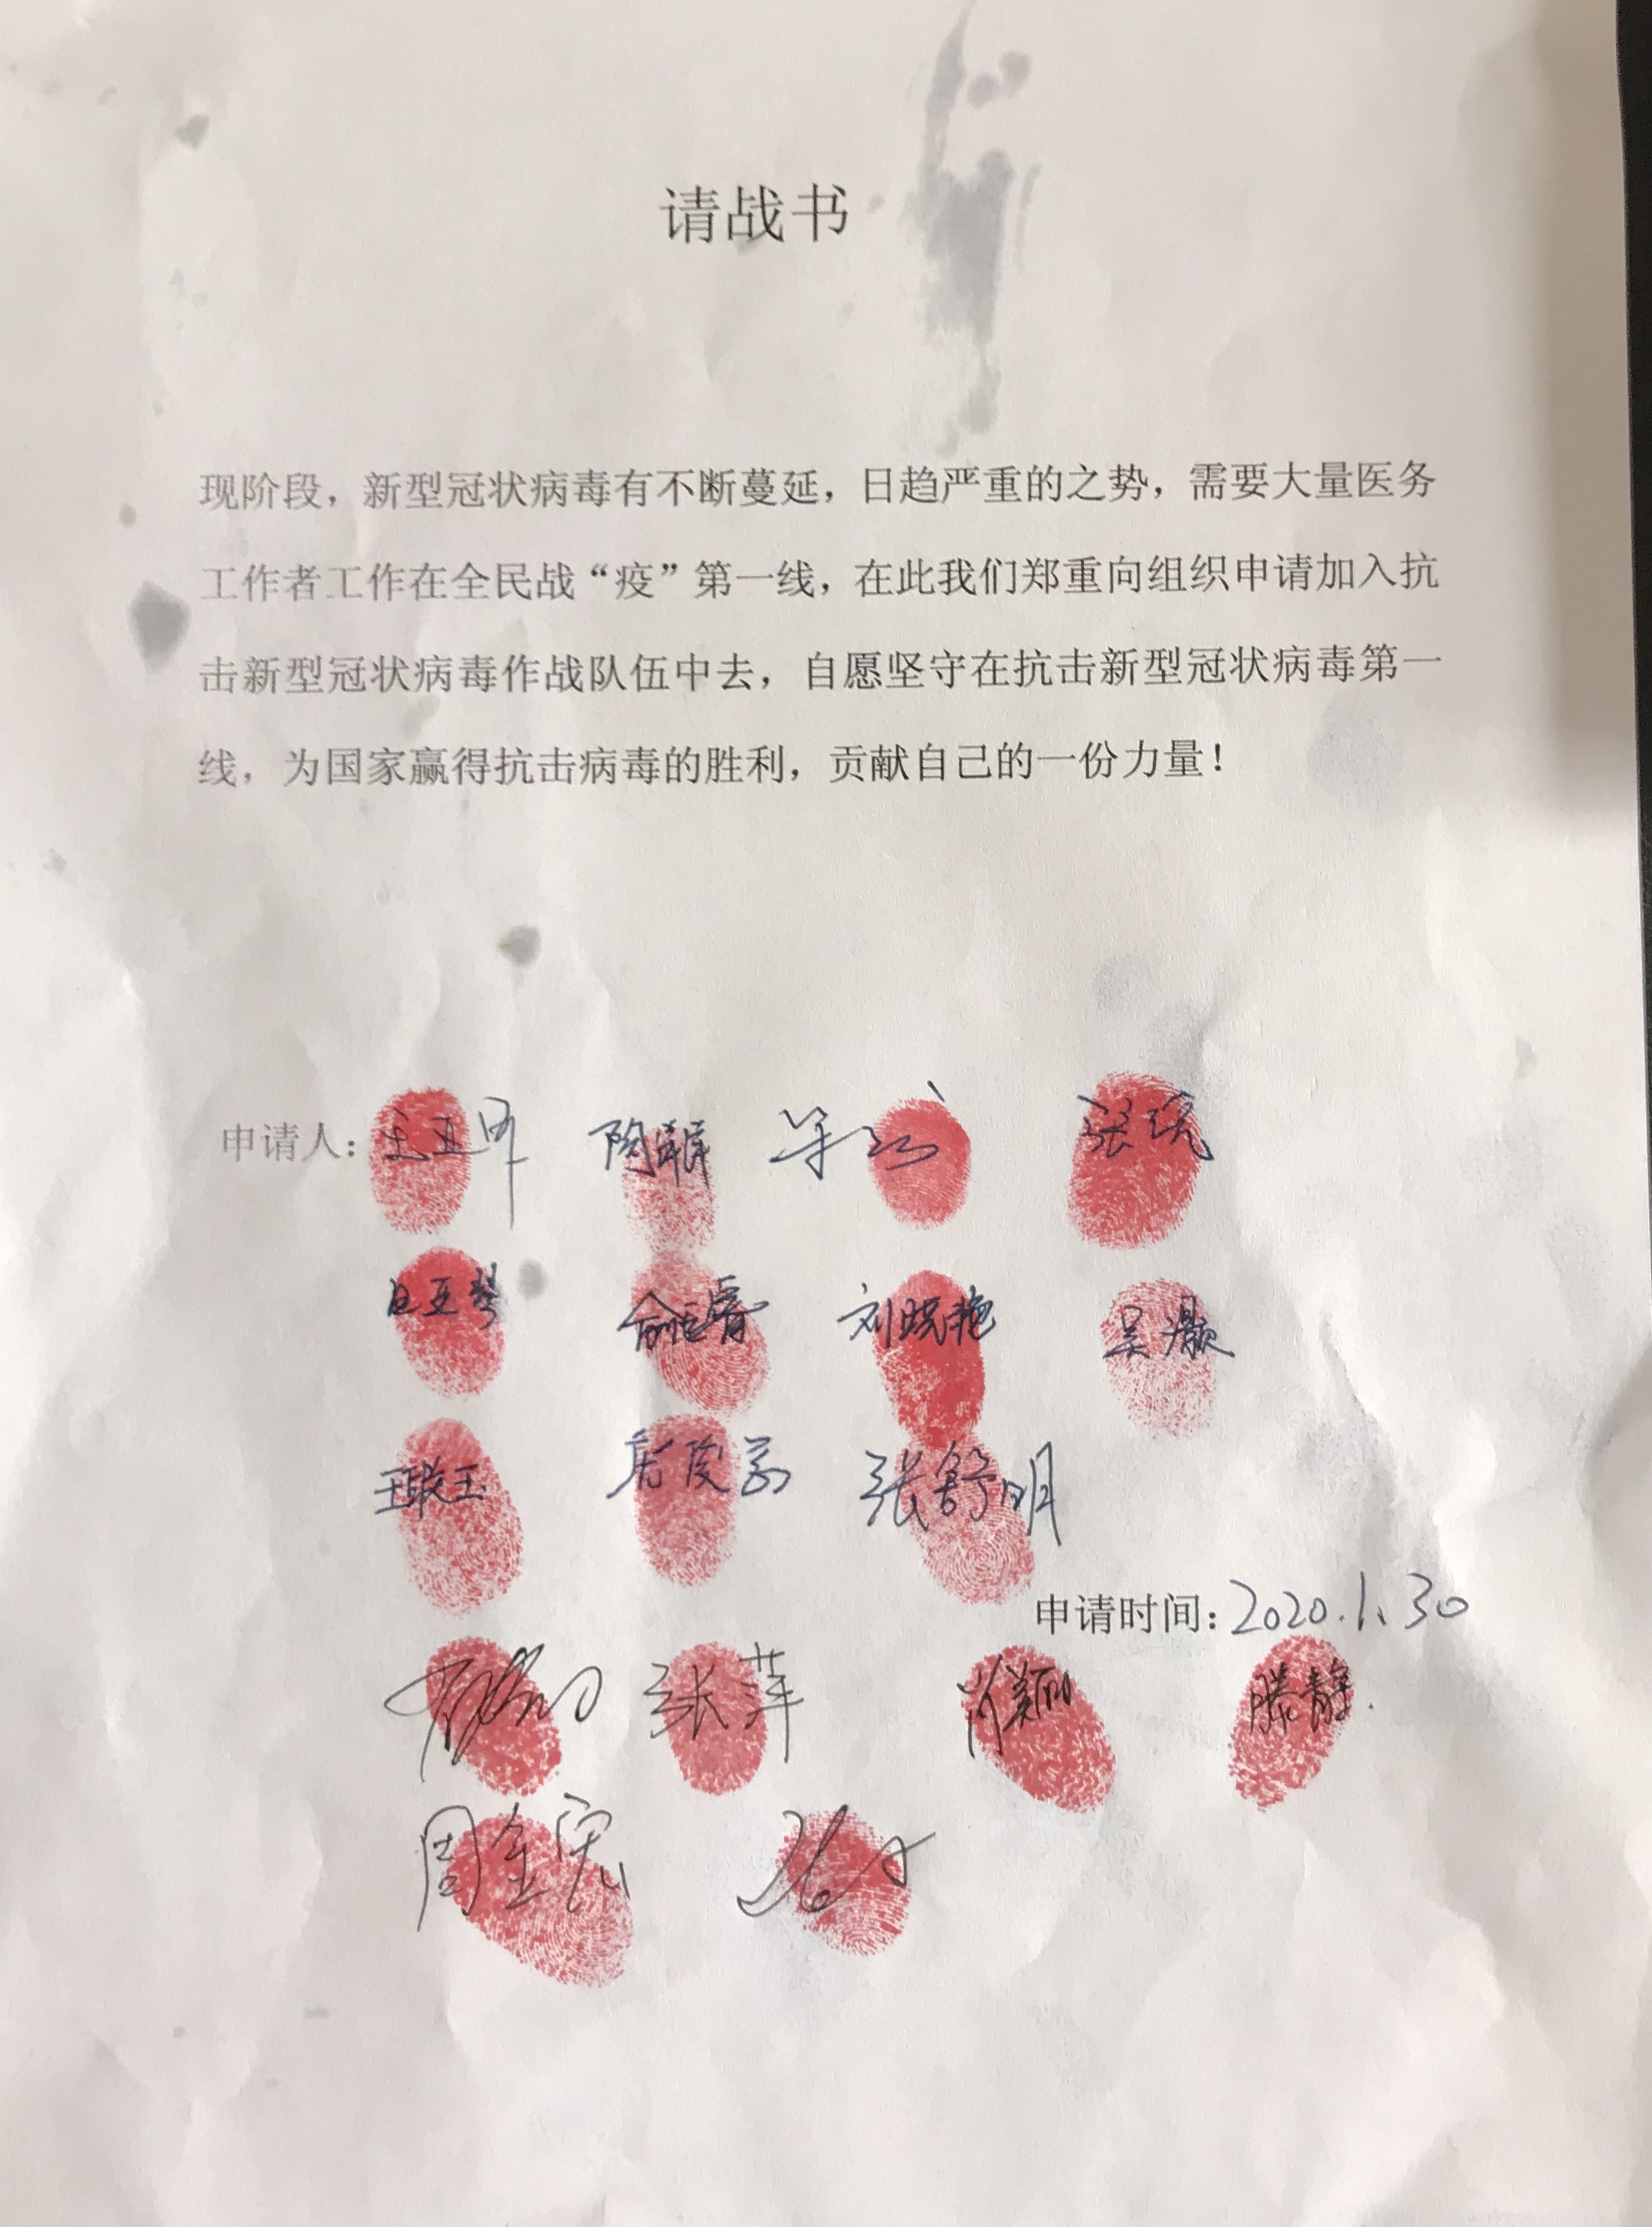 请战书
现阶段，新型冠状病毒有不断蔓延，日趋严重的之势，需要大量医务
工作者工作在全民战“疫”第一线，在此我们郑重向组织申请加入抗
击新型冠状病毒作战队伍中去，自愿坚守在抗击新型冠状病毒第一
线，为国家赢得抗击病毒的胜利，贡献自己的一份力量！
申请人：
刘晓艳 吴灏
张舒明
申请时间：2020.1.30
张萍 滕静
周金宏